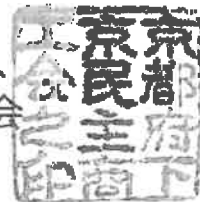 京都府下
京民主商
工会之印
会